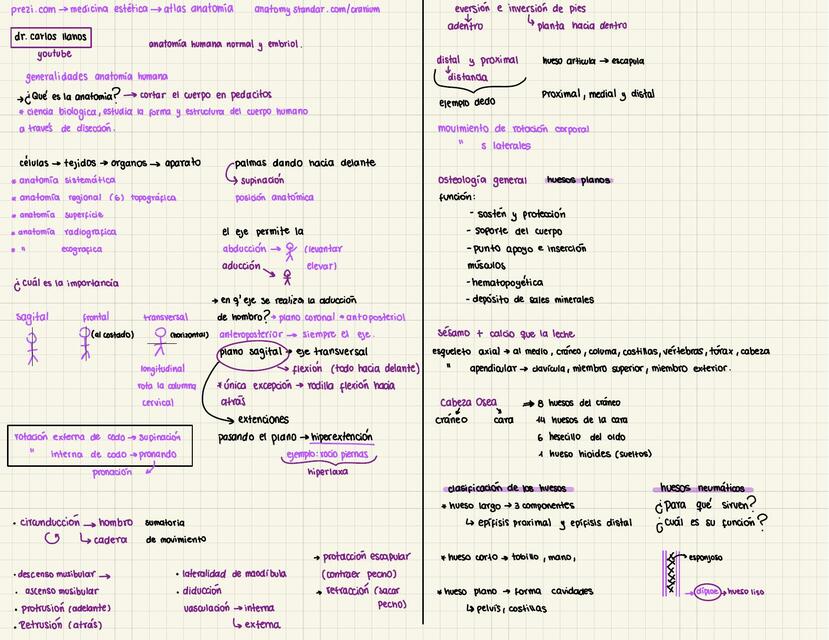 prezi.com → medicina estética → atlas anatomía anatomy standar.com/cranium
dr. carlos llanos
youtube
anatomía humana normal y embriol.
generalidades anatomía humana
→ ¿Qué es la anatomía? → cortar el cuerpo en pedacitos
* ciencia biológica, estudia la forma y estructura del cuerpo humano
a través de disección.
células → tejidos → organos → aparato
* anatomía sistemática
* anatomía regional (6) topográfica
* anatomía superficie
* anatomía radiografica
* " ecografica
¿cuál es la importancia
sagital frontal transversal
(al costado) (horizontal)
longitudinal
rota la columna
cervical
rotación externa de codo → supinación
" interna de codo → pronando
pronación
palmas dando hacia delante
supinación
posición anatómica
el eje permite la
abducción → (levantar
aducción elevar)
→ en q' eje se realiza la aducción
de hombro? → plano coronal * antoposteriol
anteroposterior → siempre el eje.
plano sagital → eje transversal
→ flexión (todo hacia delante)
* única excepción → rodilla flexión hacia
atrás
→ extenciones
pasando el plano → hiperextención
ejemplo: rocio piernas
hiperlaxa
• cirunducción → hombro sumatoria
cadera de movimiento
• descenso musibular →
• ascenso musibular
• protrusión (adelante)
• Retrusión (atrás)
• lateralidad de mandíbula
• diducción
vasculación → interna
externa
→ protacción escapular
(contraer pecho)
→ retracción (sacar
pecho)
eversión e inversión de pies
adentro planta hacia dentro
distal y proximal hueso articula → escapula
distancia
ejemplo dedo Proximal, medial y distal
movimiento de rotación corporal
" s laterales
osteología general huesos planos
función:
- sostén y protección
- soporte del cuerpo
- punto apoyo e inserción
músculos
- hematopoyética
- depósito de sales minerales
sésamo + calcio que la leche
esqueleto axial → al medio, cráneo, coluna, costillas, vértebras, tórax, cabeza
" apendicular → clavícula, miembro superior, miembro exterior.
Cabeza Osea → 8 huesos del cráneo
cráneo cara 14 huesos de la cara
6 hesecillo del oido
1 hueso hioides (sueltos)
clasificación de los huesos
* hueso largo → 3 componentes
epífisis proximal y epífisis distal
* hueso corto → tobillo, mano,
* hueso plano → forma cavidades
pelvis, costillas
huesos neumáticos
¿para qué sirven?
¿cuál es su función?
esponjoso
→ diploe → hueso liso